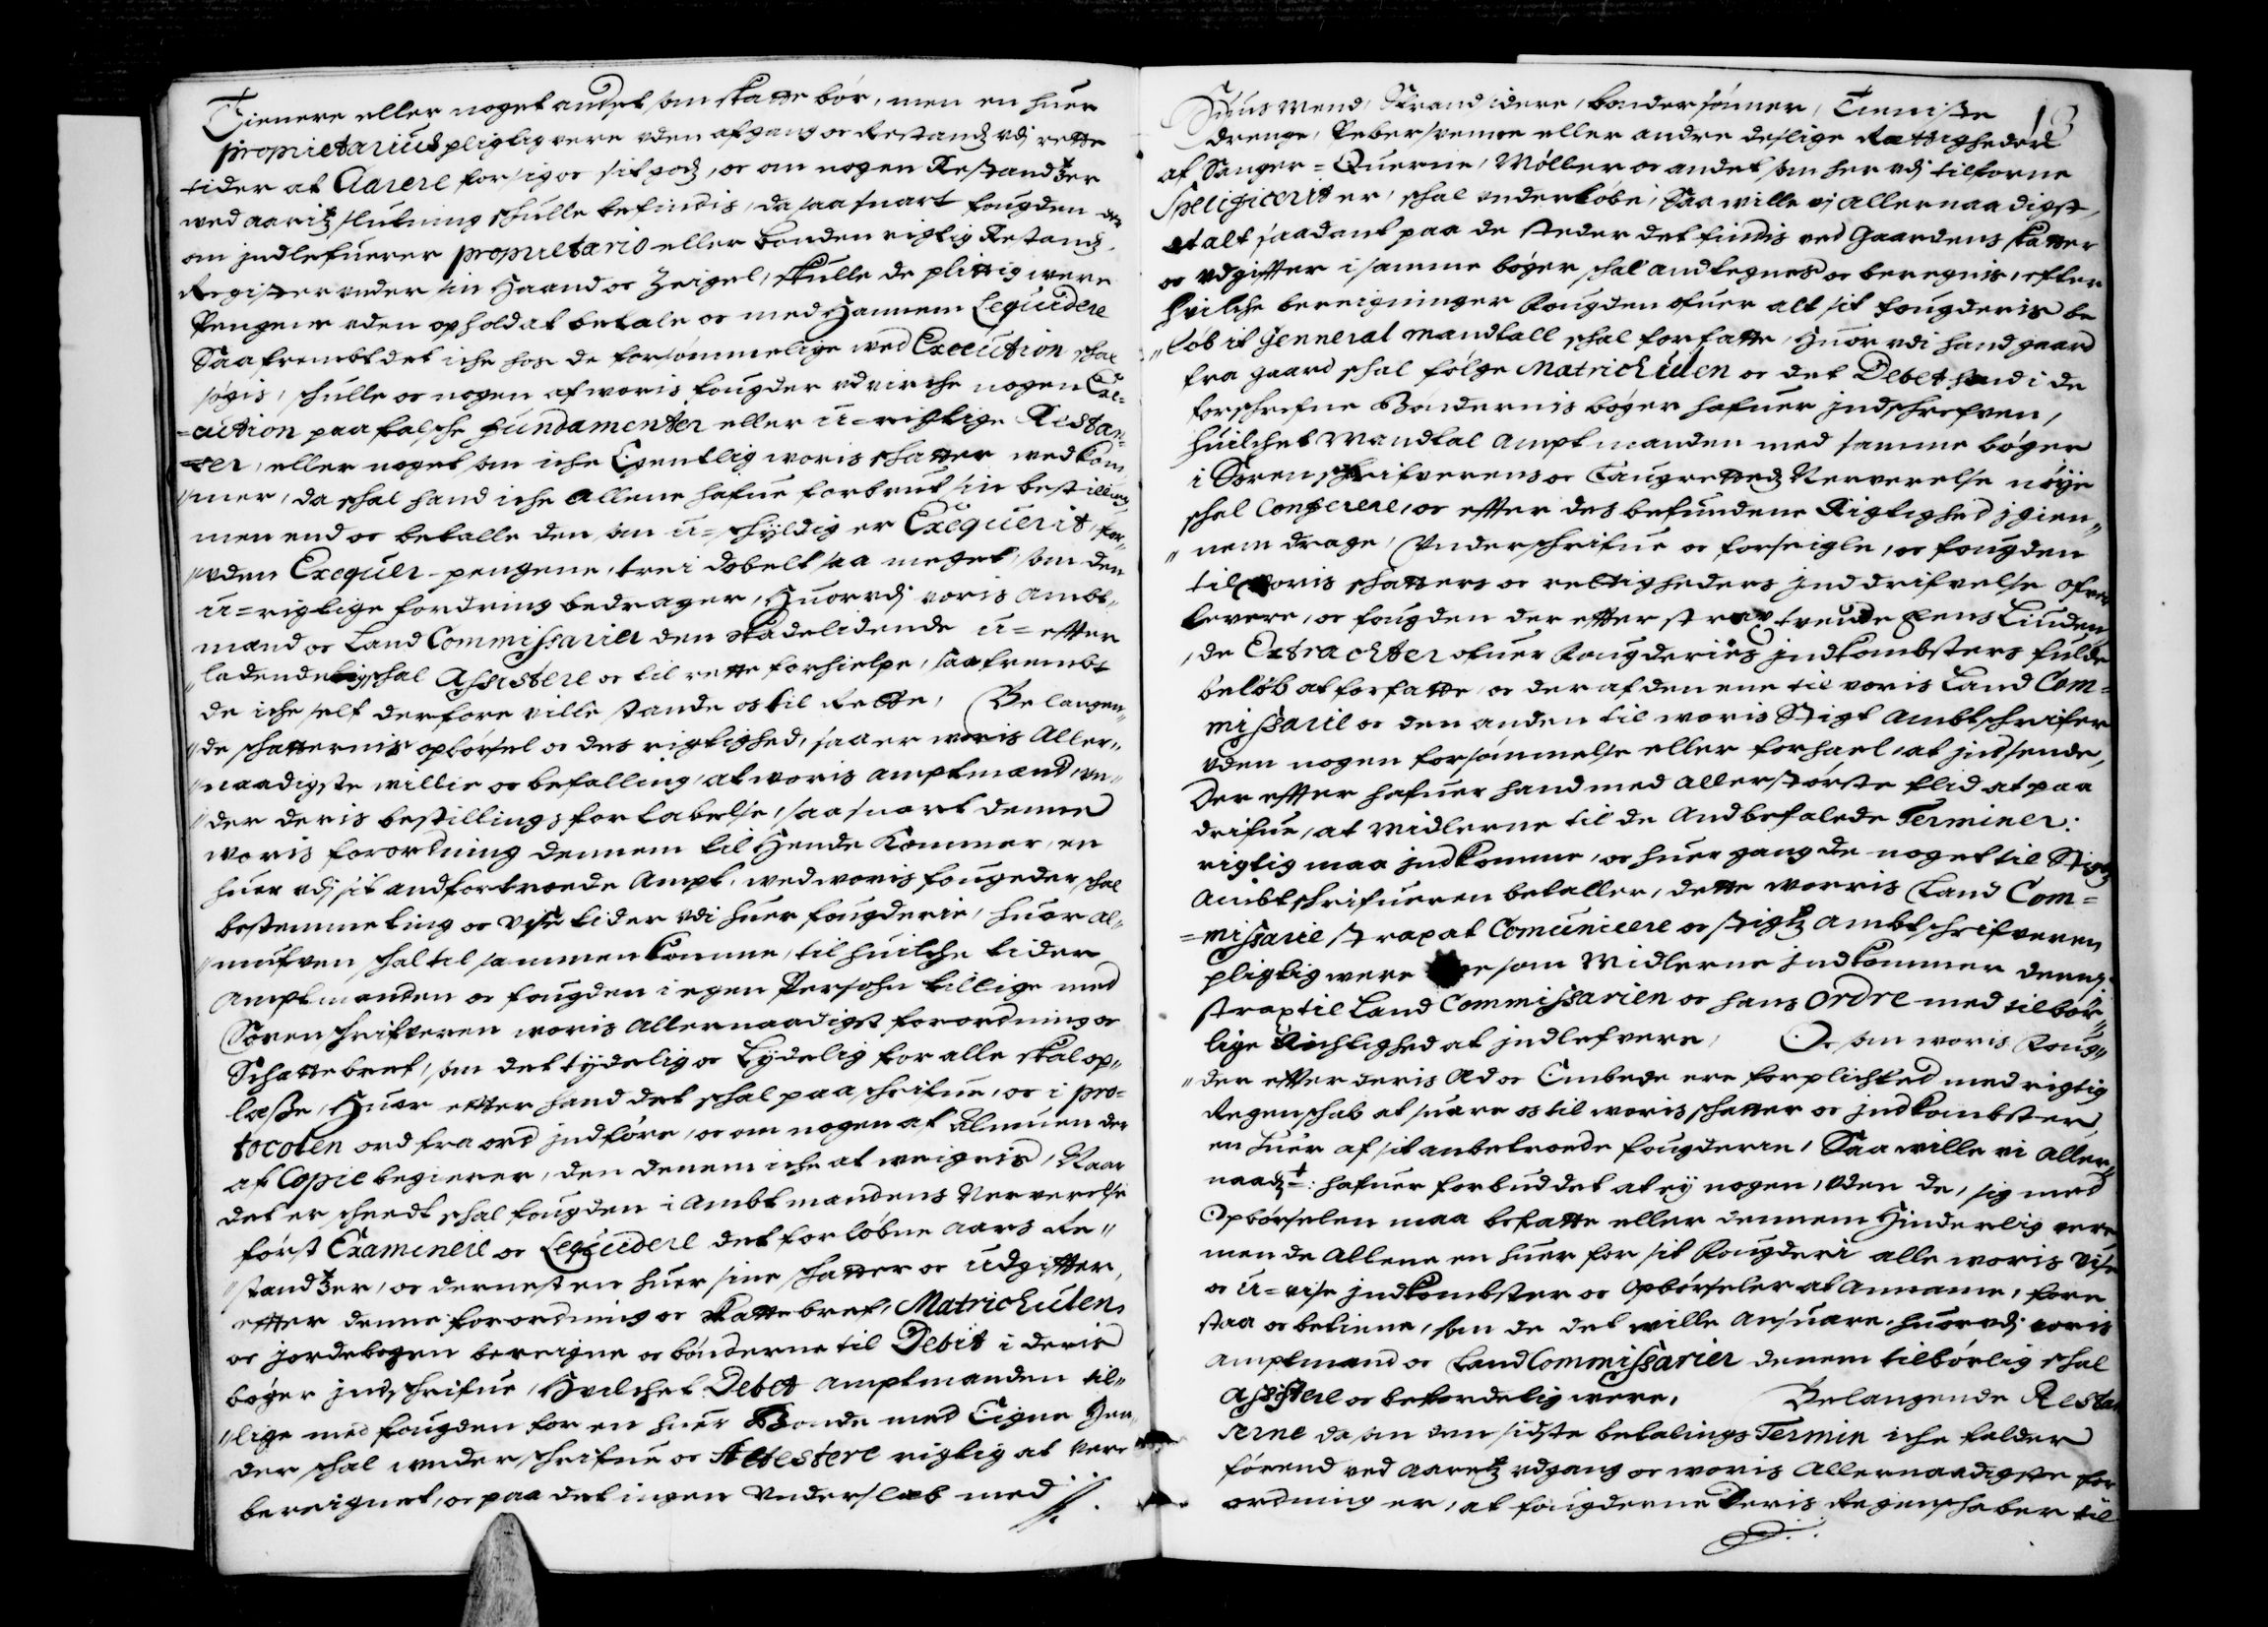 Tienere eller noget andet som skatte bør, men en huer
proprietarius pligtig vere uden afgang oc Restandz udj rette
tider at Clarere for sig oc sit godz, oc om nogen Restandtzer
wed aaritz slutning schulle befindis, da saa snart fougden
om jndlefuerer proprietario eller bonden rigtig Restandz
Register under sin Haand oc Zeigel, skulle de plittig were
Pengene uden ophold at betale oc med Hannem Leqvidere
Saafrembt det iche hos de forsømmelige wed Execution schal
søgis, schulle oc nogen af woris fougder udvirche nogen Exe-
=cution paa falsche fundamenter eller u=rigtige Restan-
=ser, eller noget som iche Egentlig woris schatter wedkom-
"mer, da schal hand iche allene hafue forbrut sin bestilling,
men end oc betalle den som u=schyldig er Exequerit, for-
"uden Exequer-pengene, trei dobelt saa meget, som den
u=rigtige fordring bedrager, Huorudj voris Ambt-
mand oc Land Commissarier den skadelidende u=efter
"ladendelig schal Assistere oc til rette forhielpe, saafrembt
de iche self derfore ville stande os til Rette, Belangen-
"de schatternis opbørsel oc des rigtighed, saa er woris Aller-
"naadigste willie oc befalling, at woris amptmænd, un-
"der deris bestillings fortabelse, saa snart denne
woris forordning dennem til Hende Kommer, en
huer udj sit andfortroede Ampt, wed woris fougeder schal
bestemme ting oc visse tider udi huer fougderie, huor al-
"mufven schal til sammen komme, til huilche tider
Amptmanden oc fougden i egen Persohn tillige med
Sorenschrifveren woris allernaadigst forordning oc
Schattebref, som det tydelig oc Lydelig for alle skal op-
læsse, Huor efter hand det schal paaschrifue, oc i pro-
tocolen ord fra ord jndføre, oc om nogen af Almuen der
af Copie begierer, den denem iche at weigris, Naar
det er scheedt schal fougden i Ambtmandens Nerverelse
først Examinere oc Leqvidere det forløbne aars Re-
"standtzer, oc dernest en huer sine schatter oc udgifter,
efter denne forordning oc skattebref, Matriculens
oc jordebogen bereigne oc bønderne til Debit i deris
bøger jndschrifue, Hvilchet Debet amptmanden til-
"lige med fougden for en huer Bonde med Eigne Hen-
der schal underschrifue oc Attestere rigtig at vere
bereignet, oc paa det ingen Underslæb med
13
Huusmend, Strandsidere, bondersønner, Tieniste
drenge, Pebersvenne eller andre deslige Rettigheder
af Sauger= Querne, Møller oc andet som her udj tilforne
Specificerit er, schal underløbe, Saa wille vj allernaadigst,
at alt saadant paa de steder det findis ved Gaardens skatter
oc udgifter i samme bøger schal andtegnes oc beregnis, efter
hvilche bereigninger Fougden ofuer alt sit fougderis be
"løb it Genneral mandtall schal forfatte, Huor udi hand gaard
fra gaard schal følge Matriculen oc det Debet hand i de
forschrefne Bøndernis bøger hafuer jndschrefven,
huilchet Mandtal Amptmanden med samme bøger
i Sorenschrifverens oc Laugrettedz Nerverelse nøye
schal Conferere, oc efter des befundene Rigtighed jgien-
"nem drage, Underschrifue oc forseigle, oc fougden
til voris schatters oc rettigheders jnddrifvelse ofver
levere, oc fougden derefter strax trende Eens Liuden
"de Extracter ofuer Fougderiets jndkombsters fulde
beløb at forfatte oc deraf den ene til voris Land Com=
missarie oc den anden til woris Stigt Ambtschrifer
uden nogen forsømmelse eller forhael, at jndsende,
Derefter hafuer hand med allerstørste flid at paa
drifue, at Midlerne til de Andbefalede Terminer:
rigtig maa jndkomme, oc huer gang de noget til Stigtz
Ambtschrifueren betaller, dette worris Land Com=
=missarie strax at Comunicere oc stigtz Ambtschrifveren
pligtig were som Midlerne jndkommer
strax til Land Commissarien oc hans Ordre med tilbør-
lige Richtighed at jndlefvere, Oc som woris Foug-
"der efter deris Æd oc Embede ere forplichted med rigtig
Regenschab at suare os til woris schatter oc jndkombster,
en huer af sit anbetroede fougderie, Saa wille vi aller-
naadt=: hafuer forbuddet at ey nogen, uden de, sig med
Opbørselen maa befatte eller dennem Hinderlig vere
men de allene en huer for sit Fougderi alle woris visse
oc u=visse jndkombster oc opbørseler at Annamme, fore
staa oc betiene, som de det wille ansuare, huorudj voris
Amptmand oc Land Commissarier denem tilbørlig schal
Assistere oc befordelig were, Belangende Restan
serne da som den sidste betalings Termin iche falder
førend ved aaretz udgang oc woris Allernaadigste for
ordning er, at fougderne deris Regenschaber til